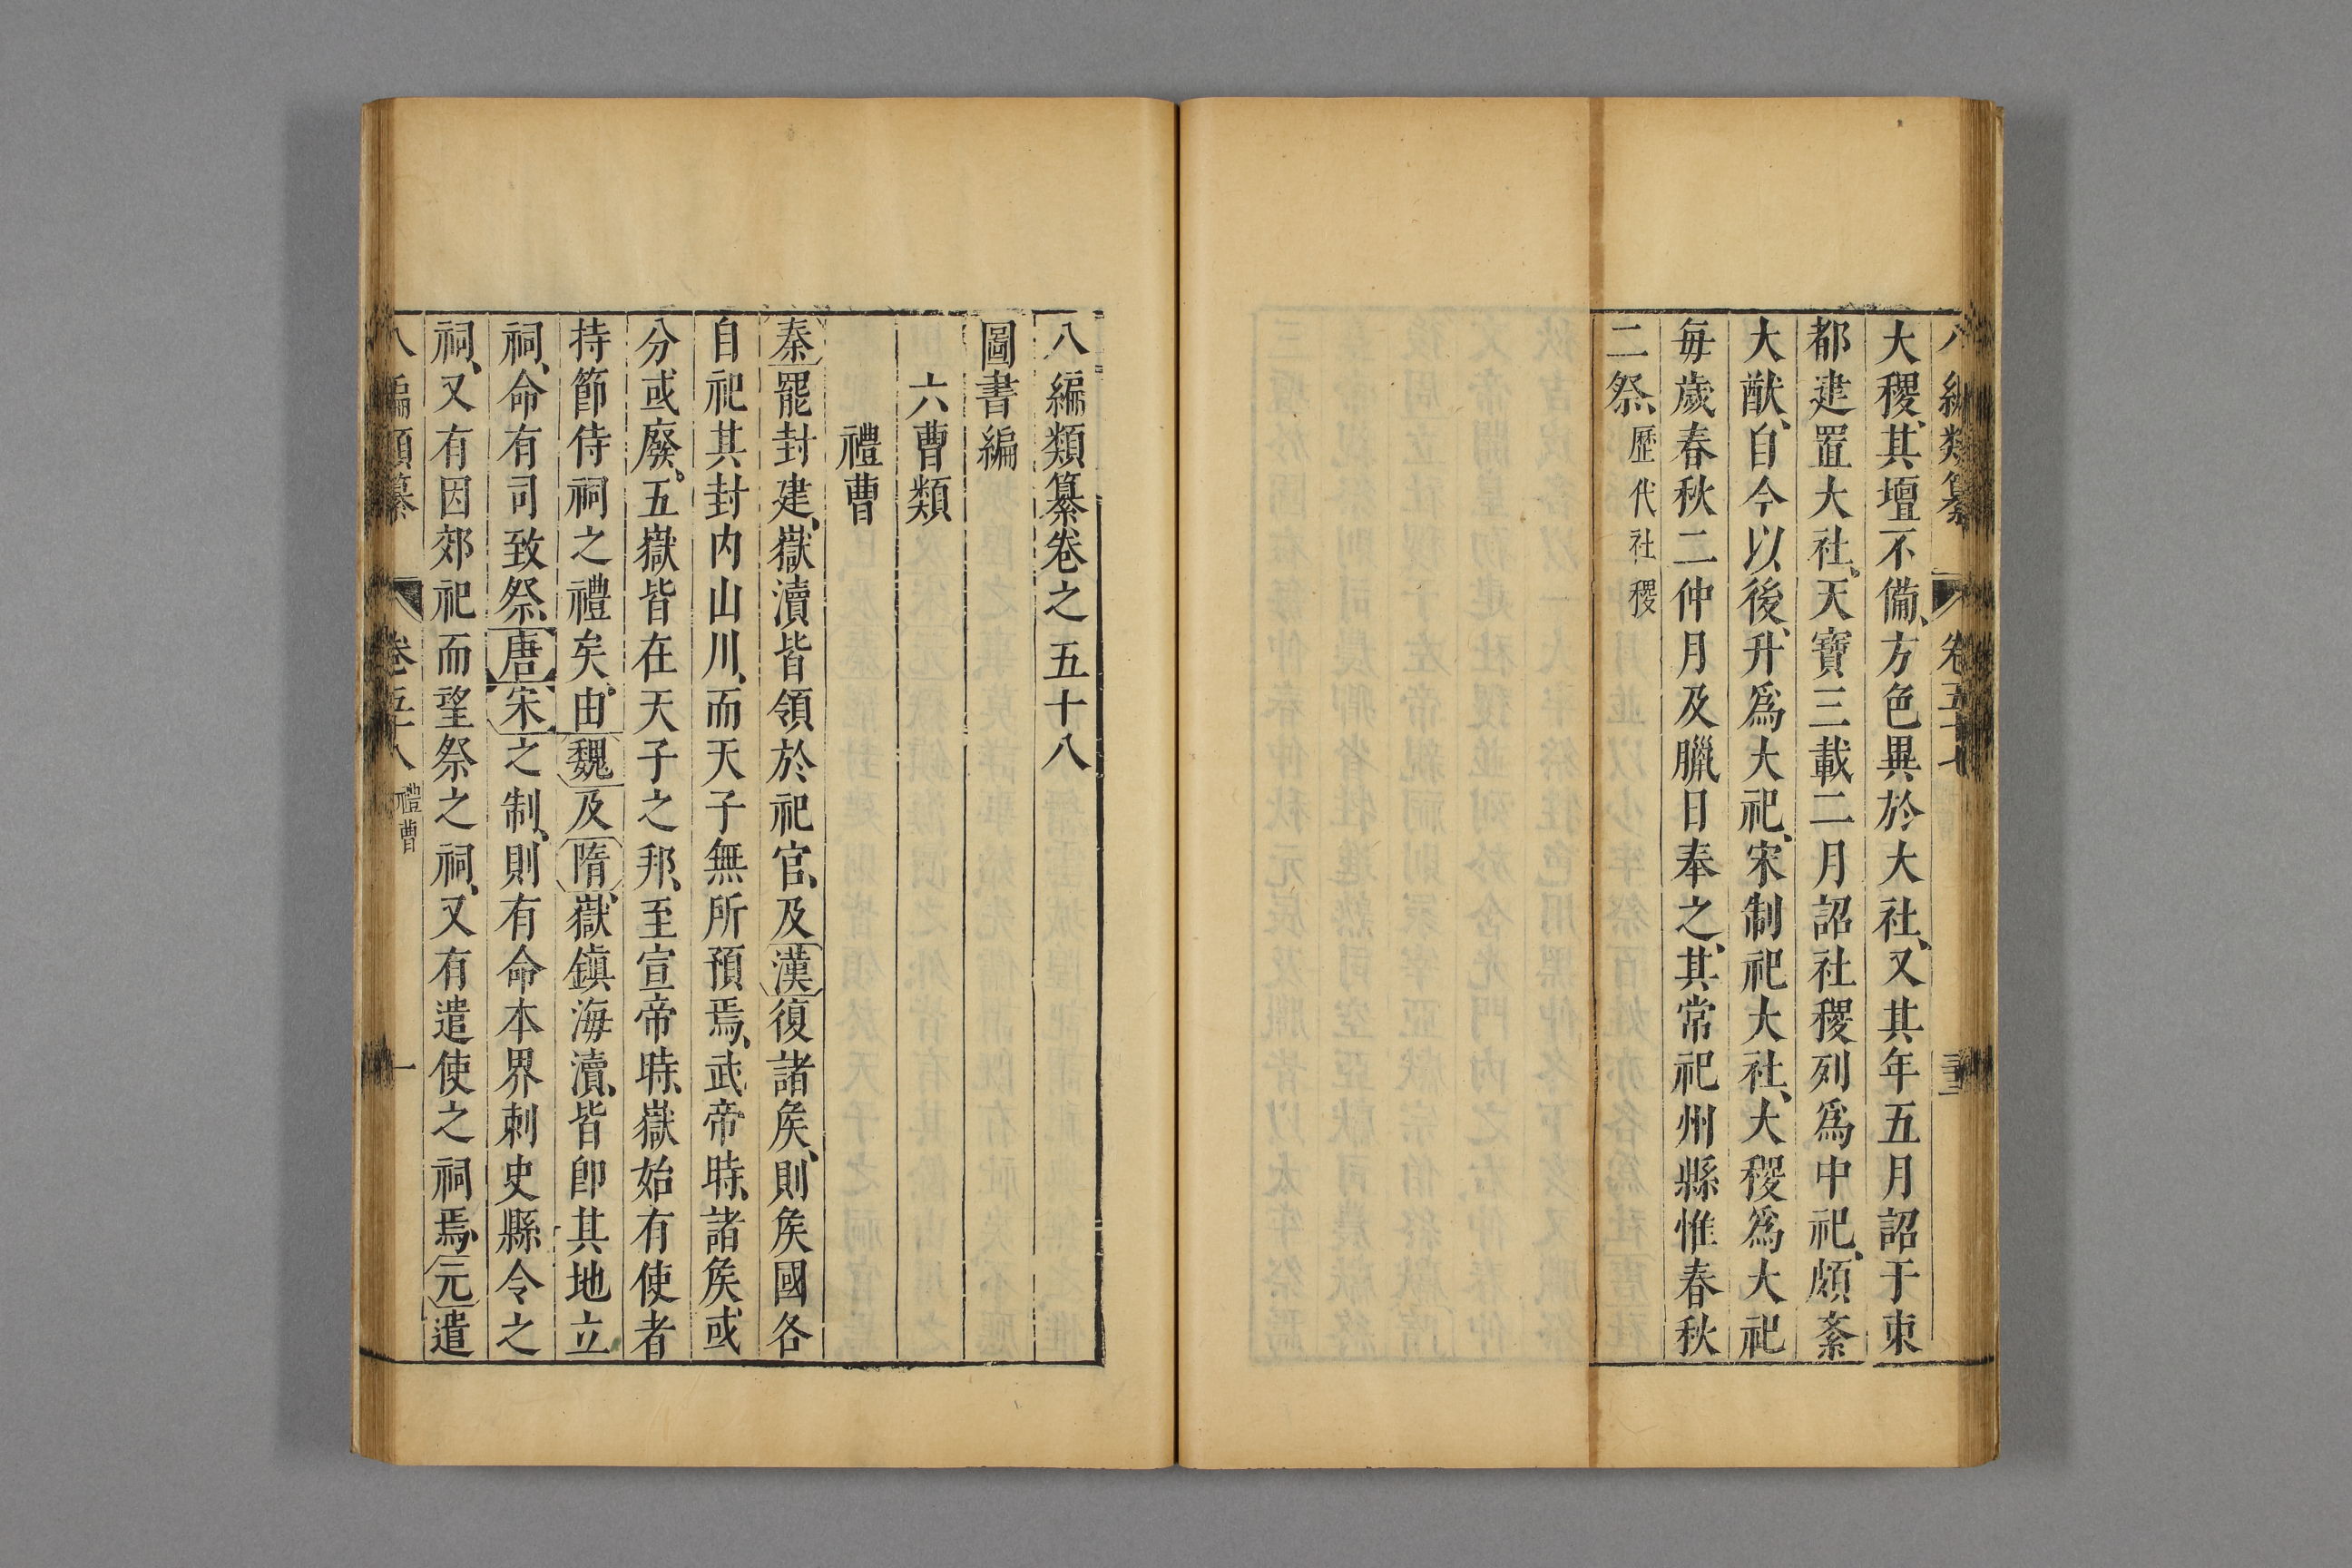 八編類纂 卷五十七
大稷、其壇不備、方色異於大社、又其年五月詔于東
都建置大社、天寶三載二月詔社稷列爲中祀、頗紊
大猷、自今以後、升爲大祀、宋制祀大社、大稷爲大祀
每歲春秋二仲月及臘日奉之、其常祀州縣惟春秋
二祭、歷代社稷
八編類纂卷之五十八
圖書編
六曹類
禮曹
秦罷封建、嶽瀆皆領於祀官、及漢復諸矦、則矦國各
自祀其封内山川、而天子無所預焉、武帝時、諸矦或
分或廢、五嶽皆在天子之邦、至宣帝時、嶽始有使者
持節侍祠之禮矣、由魏及隋、嶽鎮海瀆、皆卽其地立
祠、命有司致祭、唐宋之制、則有命本界刺史縣令之
祠、又有因郊祀而望祭之祠、又有遣使之祠焉、元遣
八編類纂 卷五十八 禮曹 一